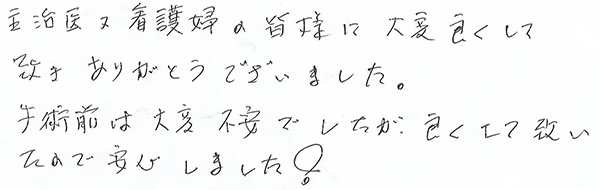 主治医又看護婦の皆様に大変良くして
致きありがとうございました。
手術前は大変不安でしたが良くして致い
たので安心しました!